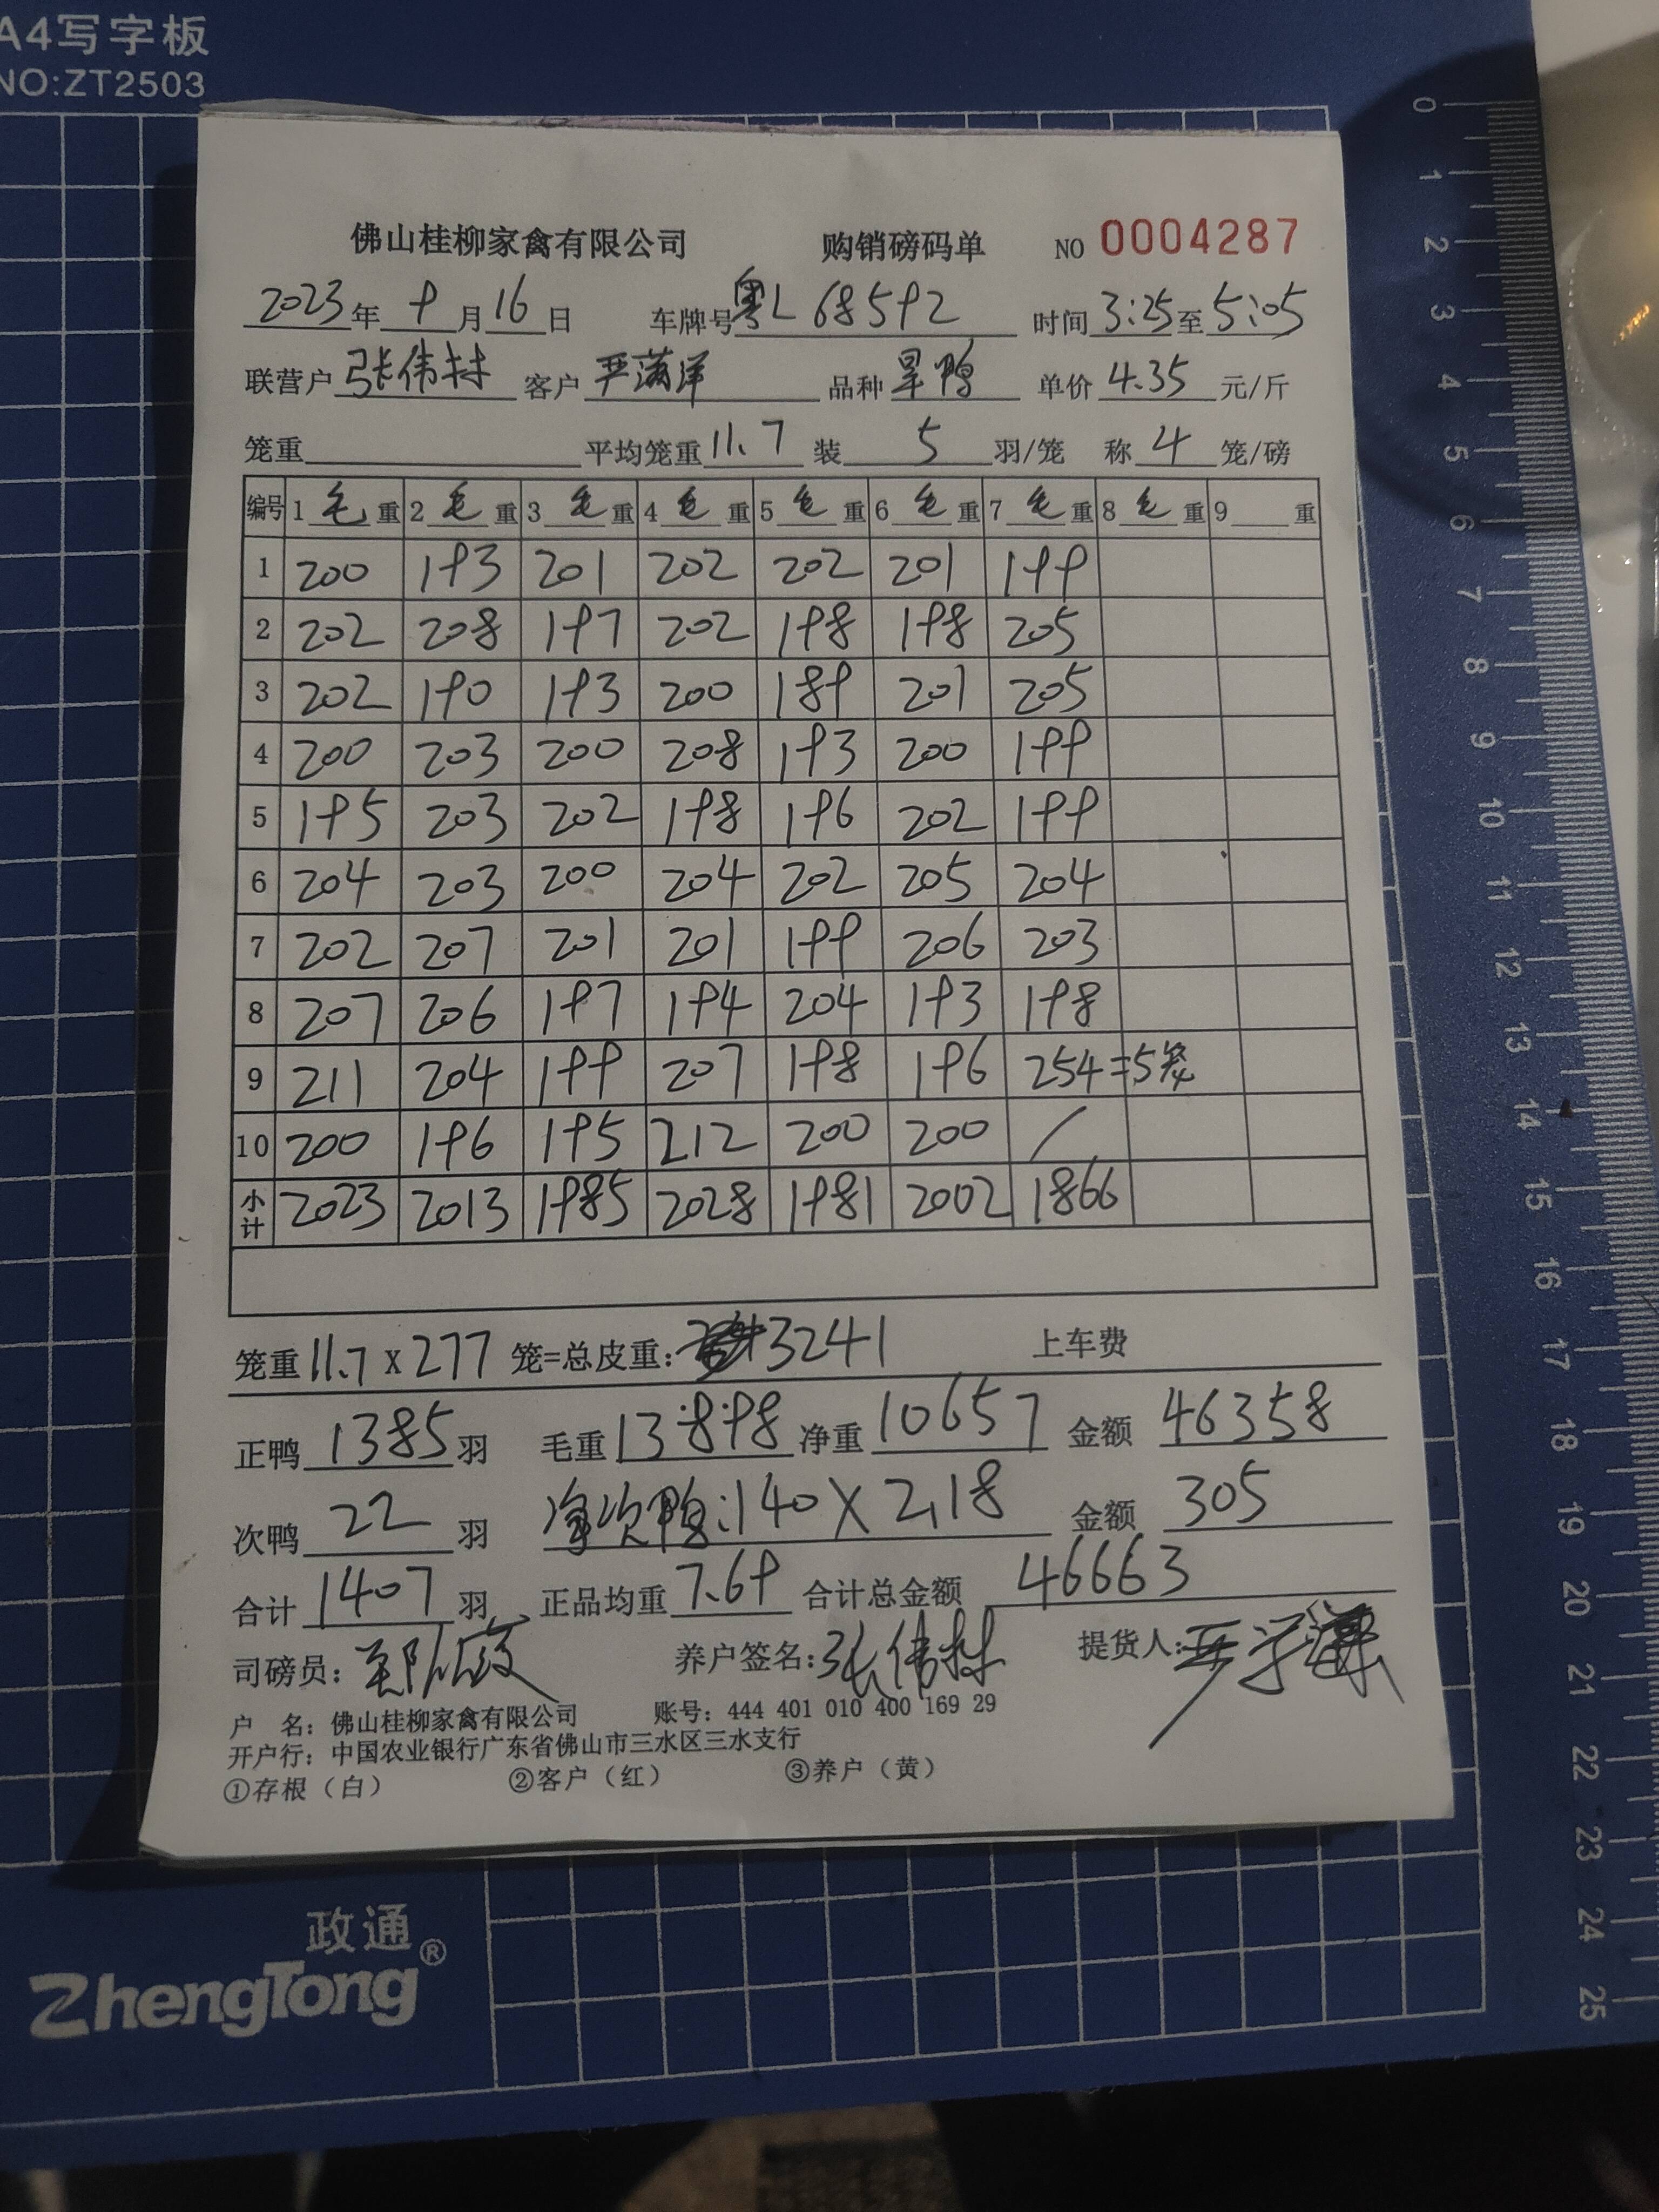 A4写字板
NO:ZT2503
佛山桂柳家禽有限公司 购销磅码单 NO 0004287
2023年 9月16日 车牌号粤L 68592 时间3:25至5:05
联营户 张伟林 客户 严满洋 品种 旱鸭 单价 4.35 元/斤
笼重 平均笼重11.7 装 5 羽/笼 称 4 笼/磅
编号 1 毛 重 2 毛 重 3 毛 重 4 毛 重 5 毛 重 6 毛 重 7 毛 重 8 毛 重 9 重
1 200 193 201 202 202 201 199
2 202 208 197 202 198 198 205
3 202 190 193 200 189 201 205
4 200 203 200 208 193 200 199
5 195 203 202 198 196 202 199
6 204 203 200 204 202 205 204
7 202 207 201 201 199 206 203
8 207 206 197 194 204 193 198
9 211 204 199 207 198 196 254=5笼
10 200 196 195 212 200 200 /
小计 2023 2013 1985 2028 1981 2002 1866
笼重 11.7 x 277 笼=总皮重: 3241 上车费
正鸭 1385 羽 毛重 13898 净重 10657 金额 46358
次鸭 22 羽 净次鸭:140 X 2.18 金额 305
合计 1407 羽 正品均重 7.69 合计总金额 46663
司磅员: 养户签名:张伟林 提货人:
户 名: 佛山桂柳家禽有限公司 账号: 444 401 010 400 169 29
开户行: 中国农业银行广东省佛山市三水区三水支行
①存根（白） ②客户（红） ③养户（黄）
政通®
ZhengTong
0
1
2
3
4
5
6
7
8
9
10
11
12
13
14
15
16
17
18
19
20
21
22
23
24
25